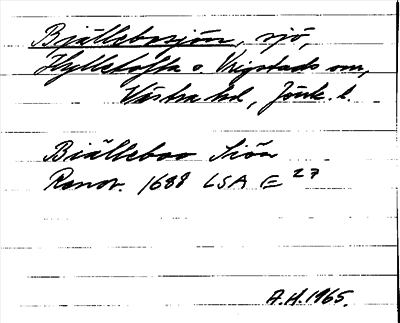 Bjällebosjön, sjö,
Hylletofta o. Vrigstads sn,
Västra hd, Jönk. l.
Biälleboo Siön
Renov. 1688 LSA E 27
A.H. 1965.